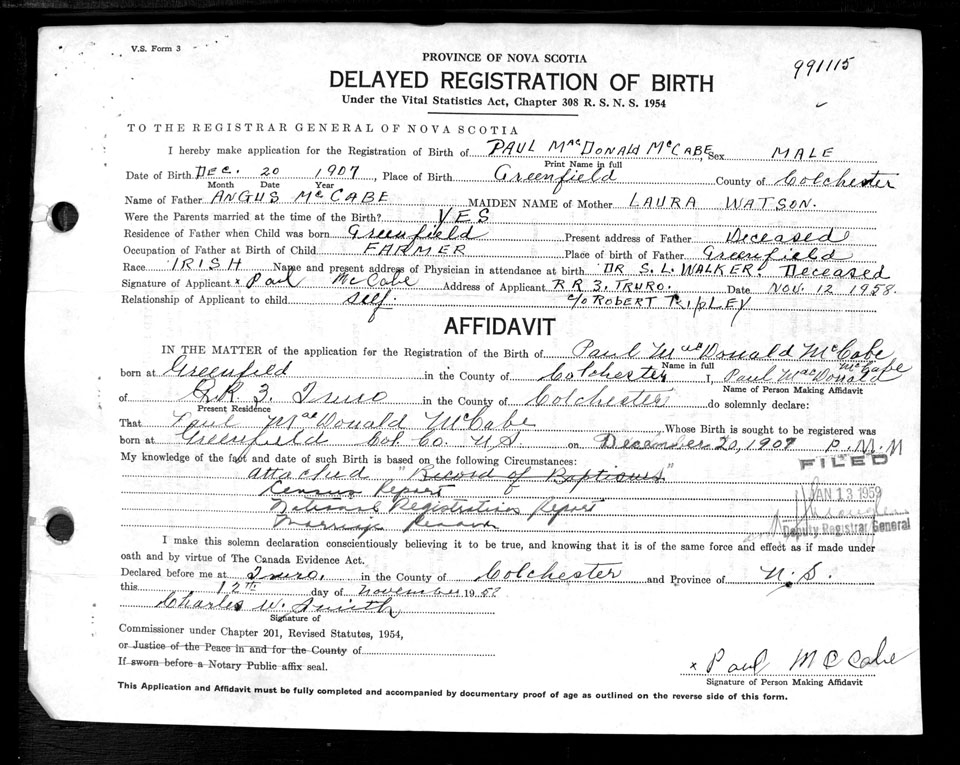 V.S. Form 3
991115
PROVINCE OF NOVA SCOTIA
DELAYED REGISTRATION OF BIRTH
Under the Vital Statistics Act, Chapter 308 R. S. N. S. 1954
TO THE REGISTRAR GENERAL OF NOVA SCOTIA
I hereby make application for the Registration of Birth of PAUL MacDONALD McCABE Sex MALE
Print Name in full
Date of Birth DEC. 20 1907, Place of Birth Greenfield County of Colchester
Month Date Year
Name of Father ANGUS McCABE MAIDEN NAME of Mother LAURA WATSON.
Were the Parents married at the time of the Birth? YES
Residence of Father when Child was born Greenfield Present address of Father Deceased
Occupation of Father at Birth of Child FARMER Place of birth of Father Greenfield
Race IRISH Name and present address of Physician in attendance at birth DR S. L. WALKER. Deceased
Signature of Applicant x Paul McCabe Address of Applicant R R 3. TRURO. Date Nov. 12 1958.
Relationship of Applicant to child self. c/o ROBERT RIPLEY
AFFIDAVIT
IN THE MATTER of the application for the Registration of the Birth of Paul MacDonald McCabe
Name in full
born at Greenfield in the County of Colchester I, Paul MacDonald McCabe
Name of Person Making Affidavit
of R.R. 3. Truro in the County of Colchester do solemnly declare:
Present Residence
That Paul MacDonald McCabe, Whose Birth is sought to be registered was
born at Greenfield Col. Co. N.S. on December 20, 1907 P. M. M
My knowledge of the fact and date of such Birth is based on the following Circumstances:
FILED
attached "Record of Baptisms"
Census Report
JAN 13 1959
National Registration Report
Deputy Registrar General
Marriage Record
I make this solemn declaration conscientiously believing it to be true, and knowing that it is of the same force and effect as if made under
oath and by virtue of The Canada Evidence Act.
Declared before me at Truro, in the County of Colchester and Province of N.S.
this 12th day of November 1958
Charles W. Smith
Signature of
Commissioner under Chapter 201, Revised Statutes, 1954,
or Justice of the Peace in and for the County of
If sworn before a Notary Public affix seal.
x Paul McCabe
Signature of Person Making Affidavit
This Application and Affidavit must be fully completed and accompanied by documentary proof of age as outlined on the reverse side of this form.